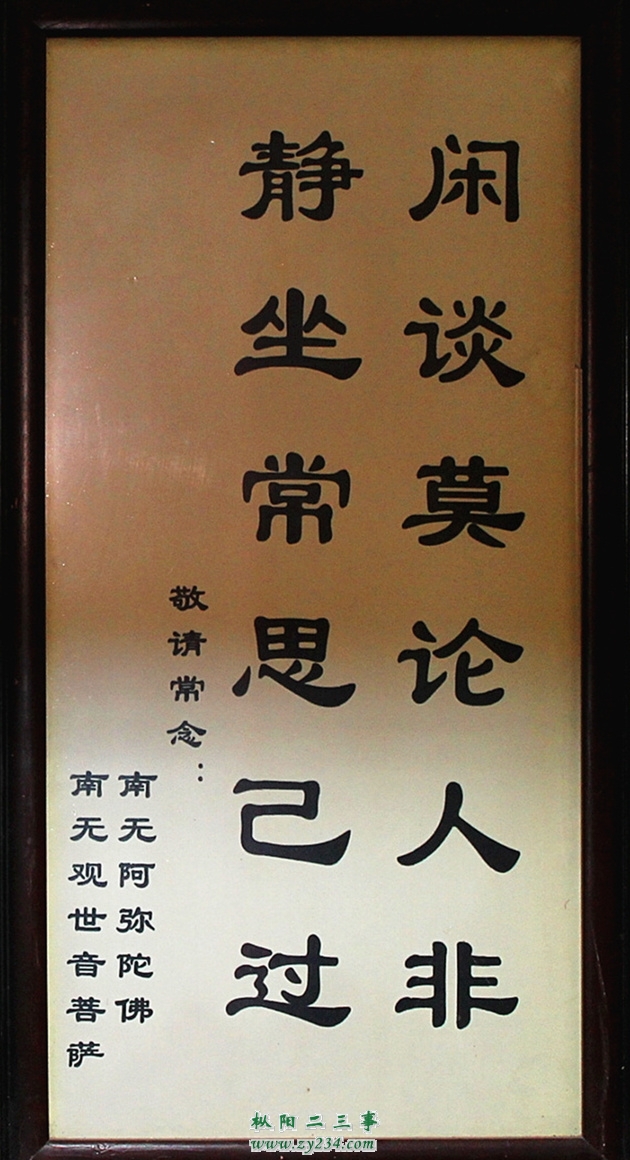 闲谈莫论人非
静坐常思己过
敬请常念：
南无阿弥陀佛
南无观世音菩萨
枞阳二三事
www.zy234.com